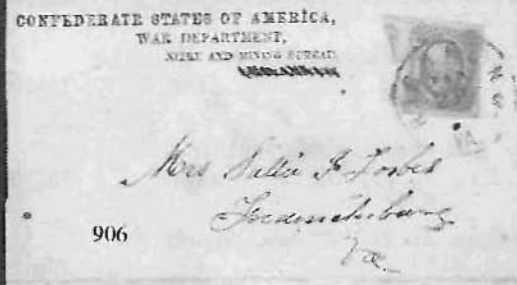 CONFEDERATE STATES OF AMERICA,
WAR DEPARTMENT,
NITRE AND MINING BUREAU
Mrs Sallie F Forbes
Fredericksburg
Va
906